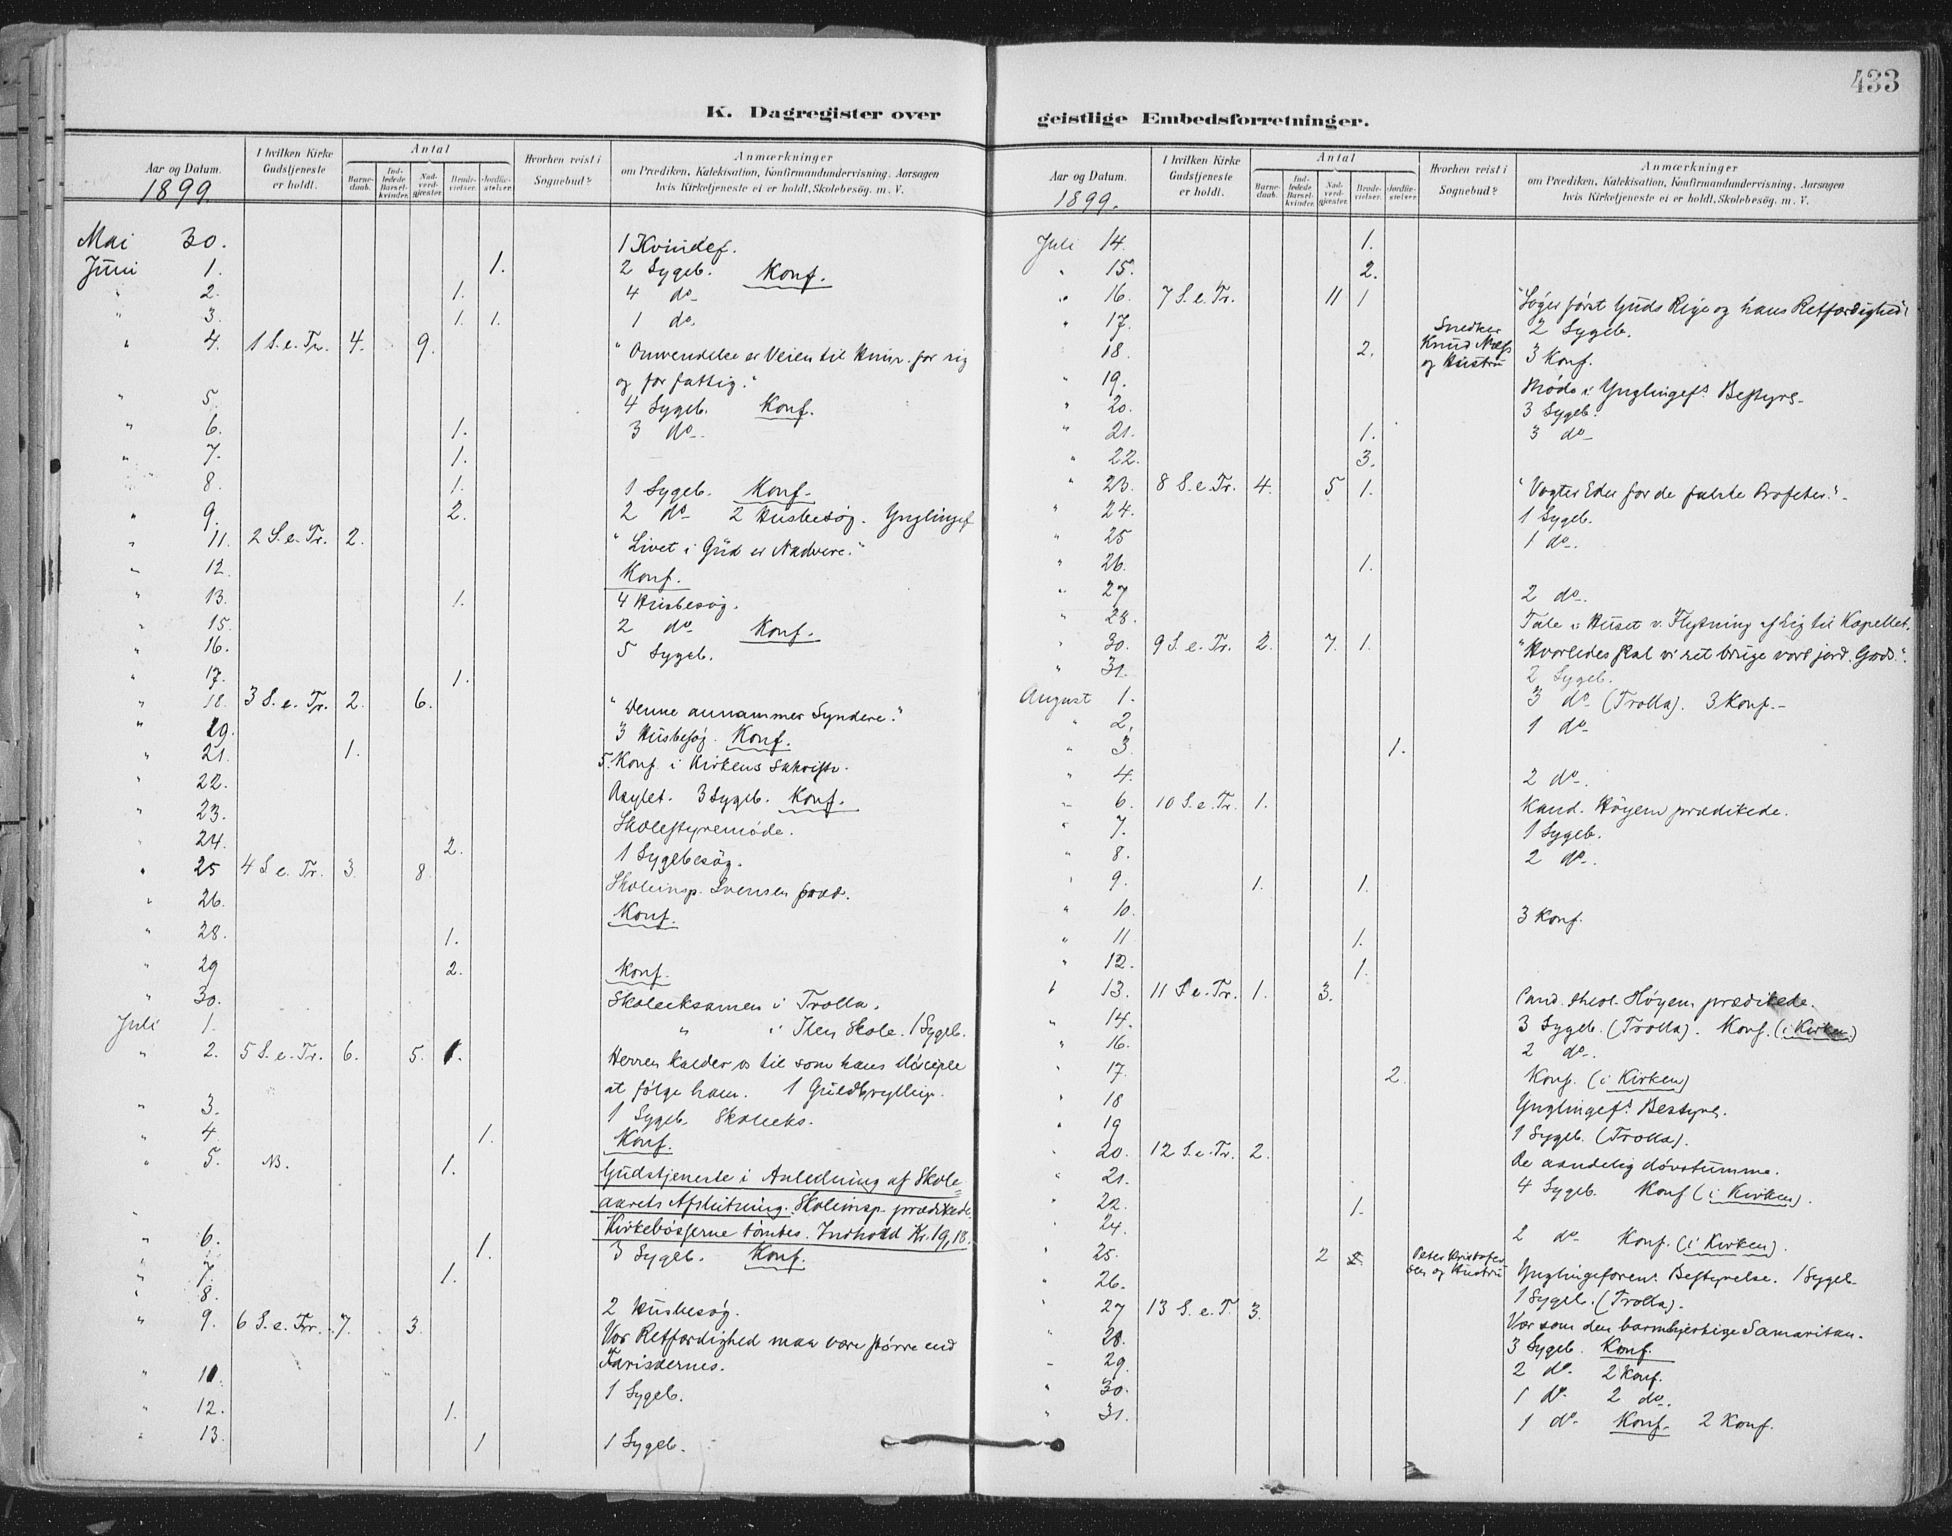 433
K. Dagregister over
Aar og Datum.
I hvilken Kirke Gudstjeneste er holdt.
Antal
Barnedaab.
Indledede Barselkvinder.
Nadverdgjester.
Brudevielser.
Jordfæstelser.
Hvorhen reist i Sognebud?
Anmærkninger
om Prædiken, Katekisation, Konfirmandundervisning, Aarsagen
hvis Kirketjeneste ei er holdt, Skolebesøg. m. V.
1899.
Mai 30. 1 Kvindef.
Juni 1. 1. 2 Sygeb. Konf.
" 2. 1. 4 do
" 3. 1. 1. 1 do.
" 4. 1 S. e. Tr. 4. 9. "Omvendelse er Veien til Himr. for rig
og for fattig."
" 5. 4 Sygeb. Konf.
" 6. 1. 3 do.
" 7. 1.
" 8. 1. 1 Sygeb. Konf.
" 9. 2. 2 do 2 Husbesøg. Ynglingef
" 11. 2 S. e. Tr. 2. "Livet i Gud er Nadvere."
" 12. Konf.
" 13. 1. 4 Husbesøg.
" 15. 2 do Konf.
" 16. 5 Sygeb.
" 17. 1.
" 18. 3 S. e. Tr. 2. 6. "Denne annammer Syndere."
" 19. 3 Husbesøg. Konf.
" 21. 1. 5. Konf. i Kirkens Sakristi.
" 22. Asylet. 3 Sygeb. Konf.
" 23. Skolestyremöde.
" 24. 2. 1 Sygebesøg.
" 25 4 S. e. Tr. 3. 8. Skoleinsp. Svensen præd.
" 26. Konf.
" 28. 1.
" 29 2. Konf.
" 30. Skoleeksamen i Trolla.
Juli 1. " i Ilens Skole. 1 Sygeb.
" 2. 5 S. e. Tr. 6. 5. 1. Herren kalder os til som hans disciple
at følge ham. 1 Guldbryllup.
" 3. 1 Sygeb. Skoleeks.
" 4. 1. Konf.
" 5. NB. 1. Gudstjeneste i Anledning af Skole-
aarets Afslutning. Skoleinsp. prædikede.
Kirkebøsserne tömtes. Indhold Kr. 19,18.
" 6. 1. 3 Sygeb. Konf.
" 7. 1.
" 8. 2 Husbesøg.
" 9. 6 S. e. Tr. 7. 3. Vor Retfærdighed maa være større end
Farisæernes.
" 11. 1 Sygeb.
" 12. 1.
" 13. 1 1 Sygeb.
geistlige Embedsforretninger.
Aar og Datum.
I hvilken Kirke Gudstjeneste er holdt.
Antal
Barnedaab.
Indledede Barselkvinder.
Nadverdgjester.
Brudevielser.
Jordfæstelser.
Hvorhen reist i Sognebud?
Anmærkninger
om Prædiken, Katekisation, Konfirmandundervisning, Aarsagen
hvis Kirketjeneste ei er holdt, Skolebesøg. m. V.
1899.
Juli 14. 1.
" 15. 2.
" 16. 7 S. e. Tr. 11 1 "Søger først Guds Rige og hans Retfærdighed"
" 17. 2 Sygeb.
" 18. 2. Snedker Knud Næss og Hustru 3 Konf.
" 19. Møde i Ynglingef. Bestyre-
" 20. 3 Sygeb.
" 21. 1. 3 do
" 22. 3.
" 23. 8 S. e. Tr. 4. 5 1. "Vogter Eder for de falske Profeter."
" 24. 1 Sygeb.
" 25 1 do.
" 26. 1.
" 27 2 do.
" 28. Tale i Huset v. Flytning af Lig til Kapellet.
" 30. 9 S. e. Tr. 2. 7. 1. "Hvorledes skal vi ret bruge vort jord. Gods."
" 31. 2 Sygeb.
August 1. 3 do (Trolla). 3 Konf.
" 2. 1 do
" 3. 1.
" 4. 2 do
" 6. 10 S. e. Tr. 1. Kand. Höyem prædikede.
" 7. 1 Sygeb.
" 8. 2 do.
" 9. 1. 1.
" 10. 3 Konf.
" 11 1.
" 12. 1.
" 13. 11 S. e. Tr. 1. 3. Cand. theol. Höyem prædikede.
" 14. 3 Sygeb. (Trolla). Konf. (i Kirken)
" 16. 2 do.
" 17. 2 Konf. (i Kirken)
" 18 Ynglingef. Bestyre.
" 19 1 Sygeb. (Trolla).
" 20. 12 S. e. Tr. 2. De aandelig døvstumme.
" 21. 4 Sygeb. Konf (i Kirken).
" 22. 1.
" 24. 2 do Konf. (i Kirken).
" 25. 2 Peter Kristofersen og Hustru Ynglingeforen. Bestyrelse. 1 Sygeb
" 26. 1 Sygeb. (Trolla).
" 27 13 S. e. T. 3. Vær som den barmhjertige Samaritan.
" 28. 3 Sygeb. Konf.
" 29. 2 do. 2 Konf.
" 30. 1 do. 2 do.
" 31. 1 do. Konf. 2 Konf.